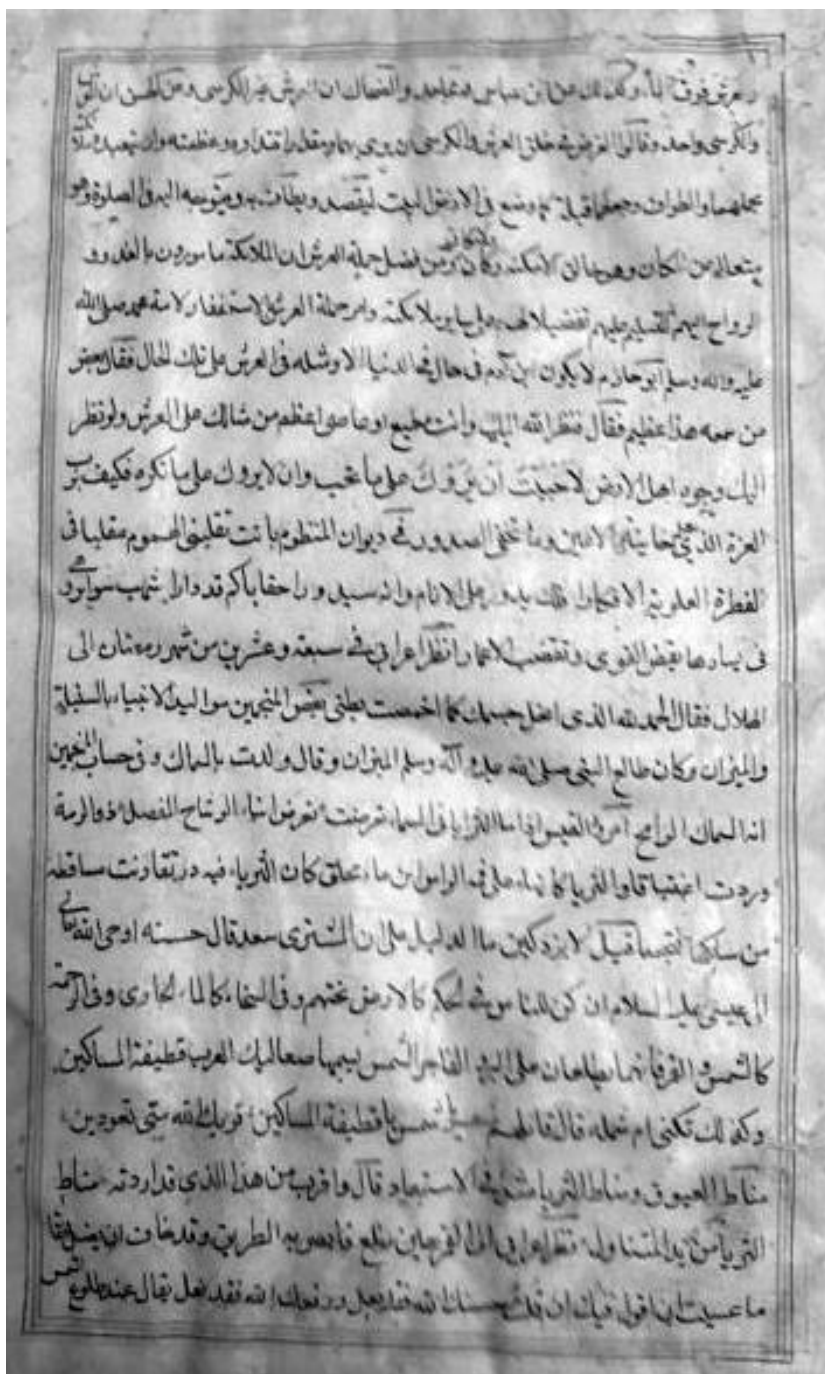 وعرشه فوق الماء وكذلك عن ابن عباس ومجاهد والضحاك ان العرش غير الكرسى وعن الحسن ان العرش
والكرسى واحد وقالوا الغرض فى خلق العرش والكرسى ان يرى بهما مقدار اقتداره وعظمته وان تعبد ملائكته
بحملهما والطواف وجعلها قبلة كما وضع فى الارض البيت ليقصد ويطاف به ويتوجه اليه فى الصلوة وهو
يتعالى من المكان وهو خالق الامكنة وكان ومن فضل حملة العرش ان الملائكة مامورون بالغدو و
الرواح اليهم للتسليم عليهم تفضيلا لهم على ساير ملائكته وامر حملة العرش لاستغفار لامة محمد صلى الله
عليه واله وسلم ابو حازم لا يكون ابن آدم فى حال فى الدنيا الا ومثله فى العرش على تلك الحال فقال بعض
من معه هذا عظيم فقال فنظر الله اليك وانت مطيع او عاصى اعظم من مثالك على العرش ولو نظر
اليك وجوه اهل الارض لاحببت ان يروك على ما تحب وان لا يروك على ما تكره فكيف برب
العزة الذى يعلم خاينة الاعين وما تخفى الصدور فى ديوان المنظوم باتت تقلبنى الهموم مقلبا فى
الفطرة العلوية الافكارا فلك يدور على الانام وانه سيدور احقابا كم قد دارا شهب سوابح
فى مسارها يقبض القوى وتقضب الاعمارا نظر اعرابى فى سبعة وعشرين من شهر رمضان الى
الهلال فقال الحمد لله الذى انحل جسمك كما اخمصت بطنى بعض المنجمين مواليد الانبياء بالسنبلة
والميزان وكان طالع النبى صلى الله عليه وآله وسلم الميزان وقال ولدت بالسماك وفى حساب المنجمين
انه السماك الرامح امرؤ القيس اذا ما الثريا فى السماء تعرضت تعرض اثناء الوشاح المفصل ذو الرمة
وردت اعتسافا والثريا كانها على قمة الراس ابن ماء محلق كان الثريا فيه در تقاونت ساقطه
من سلكها فتبسما قيل لابزدكين ما الدليل على ان المشترى سعد قال حسنه اوحى الله تعالى
الى عيسى عليه السلام ان كن للناس فى الحلم كالارض تحتهم وفى السخاء كالماء الجارى وفى الرحمة
كالشمس والقمر فانهما يطلعان على البر والفاجر الشمس يسميها صعاليك العرب قطيفة المساكين
وكذلك تكنى ام شملة قال قائلهم شمس يا قطيفة المساكين قربك الله متى تعودين
مناط العيوق ومناط الثريا مثل فى الاستبعاد قال واقرب من هذا الذى قد اردته مناط
الثريا من يد المتناول نظر اعرابى الى القمر حين طلع فابصر به الطريق وقد خاف ان يضل فقال
ما عسيت ان اقول فيك ان قلت حسنك الله فقد فعل ورفعك الله فقد فعل يقال عند طلوع الشمس